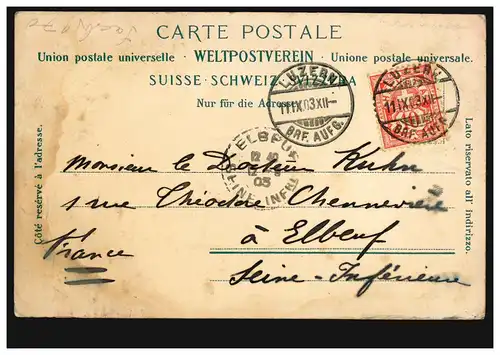 CARTE POSTALE
Union postale universelle · WELTPOSTVEREIN · Unione postale universale.
SUISSE · SCHWEIZ · SVIZZERA
Nur für die Adresse
LUZERN
11.IX.03.XII-
BRF. AUFG.
LUZERN
11.IX.03.XII-
BRF. AUFG.
ELBEUF
12
03
SEINE INFRE
Côté réservé à l'adresse.
Lato riservato all' indirizzo.
Monsieur le Docteur Kuhn
rue Théodore Chennevière
à Elbeuf
France
Seine-Inférieure